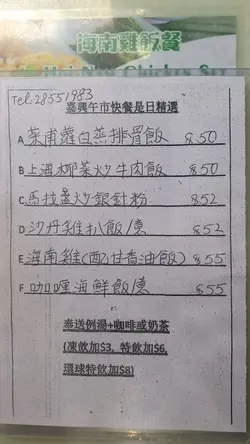 海南雞飯餐
Hai Nan Chicken Set
Tel:28551983
嘉興午市快餐是日精選
A 菜甫蘿白蒸排骨飯 $50
B 上海椰菜炒牛肉飯 $50
C 馬拉盞炒銀針粉 $52
D 沙丹雞扒飯/意 $52
E 海南雞(配甘香油飯) $55
F 咖哩海鮮飯/意 $55
奉送例湯+咖啡或奶茶
(凍飲加$3, 特飲加$6,
環球特飲加$8)